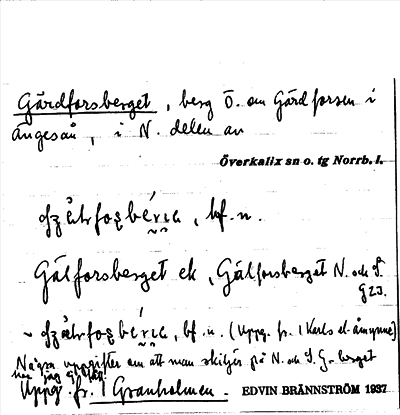 Gärdforsberget, berg Ö. om Gärdforsen i
Ängesån, i N. delen av
Överkalix sn o. tg Norrb. l.
, bf. n.
Gälforsberget ek, Gälforsberget N. och S.
GZJ.
~ , bf. n. (Uppg. fr. 1 Karls el. åmynne)
Några uppgifter om att man skiljer på N. och S. G-berget
har jag ej fått.
Uppg. fr. 1 Granholmen. EDVIN BRÄNNSTRÖM 1937